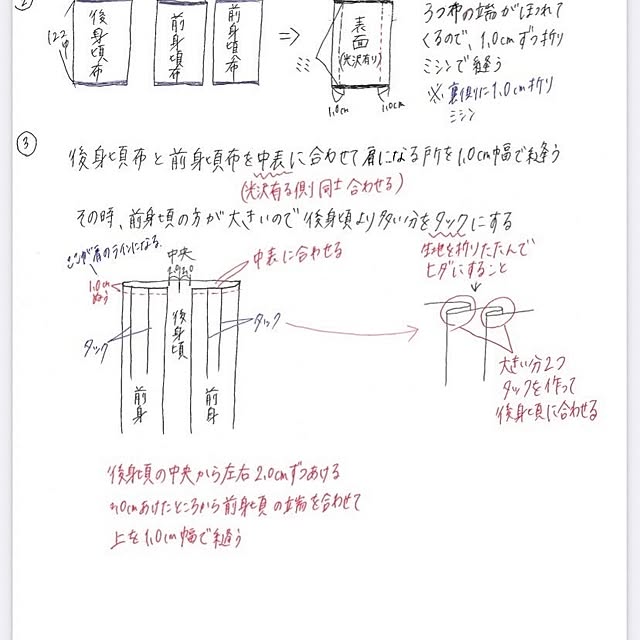 ②
122
後身頃布
前身頃布
前身頃布
⇒
ミミ
表面
(光沢有り)
1.0cm
1.0cm
3つ布の端がほつれて
くるので、1.0cmずつ折り
ミシンで縫う
※裏側に1.0cm折り
ミシン
③
後身頃布と前身頃布を中表に合わせて肩になる所を1.0cm幅で縫う
(光沢有る側同士合わせる)
その時、前身頃の方が大きいので後身頃より多い分をタックにする
生地を折りたたんで
ヒダにすること
ここが肩のラインになる
中央
2.0 2.0
中表に合わせる
1.0cm
ぬう
タック
後身頃
タック
前身
前身
大きい分2つ
タックを作って
後身頃に合わせる
後身頃の中央から左右2.0cmずつあける
2.0cmあけたところから前身頃の端を合わせて
上を1.0cm幅で縫う